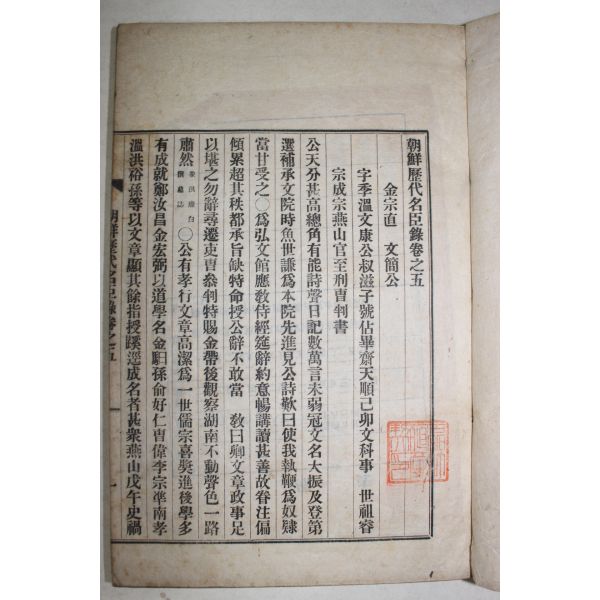 朝鮮歷代名臣錄卷之五
金宗直 文簡公
字季溫文康公叔滋子號佔畢齋天順己卯文科事 世祖睿
宗成宗燕山官至刑曹判書
公天分甚高總角有能詩聲日記數萬言未弱冠文名大振及登第
選補承文院時魚世謙爲本院先進見公詩歎曰使我執鞭爲奴隷
當甘受之○爲弘文館應敎侍經筵辭約意暢講讀甚善故眷注偏
傾累超其秩都承旨缺特命授公辭不敢當 敎曰卿文章政事足
以堪之勿辭尋遷吏曹叅判特賜金帶後觀察湖南不動聲色一路
肅然○公有孝行文章高潔爲一世儒宗喜奬進後學多
有成就鄭汝昌金宏弼以道學名金馹孫俞好仁曺偉李宗準南孝
溫洪裕孫等以文章顯其餘指授蹊逕成名者甚衆燕山戊午史禍
朝鮮歷代名臣錄卷之五 一